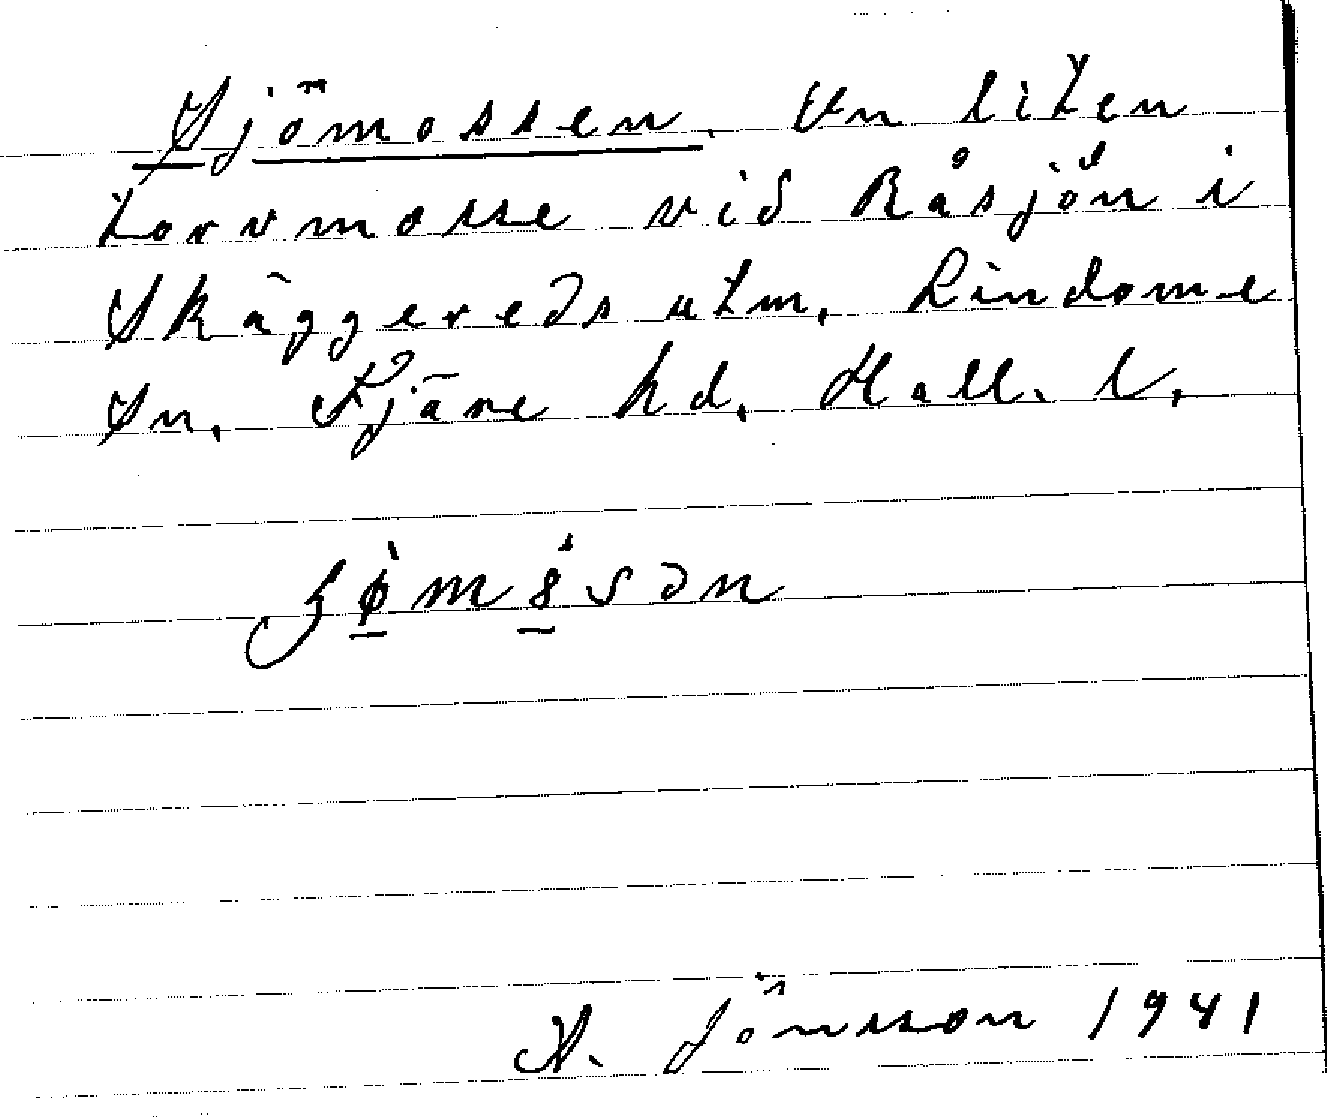 Sjömossen. En liten
torvmosse vid Råsjön i
Skäggereds utm, Lindome
sn, Fjäre hd, Hall. l.
A. Jönsson 1941